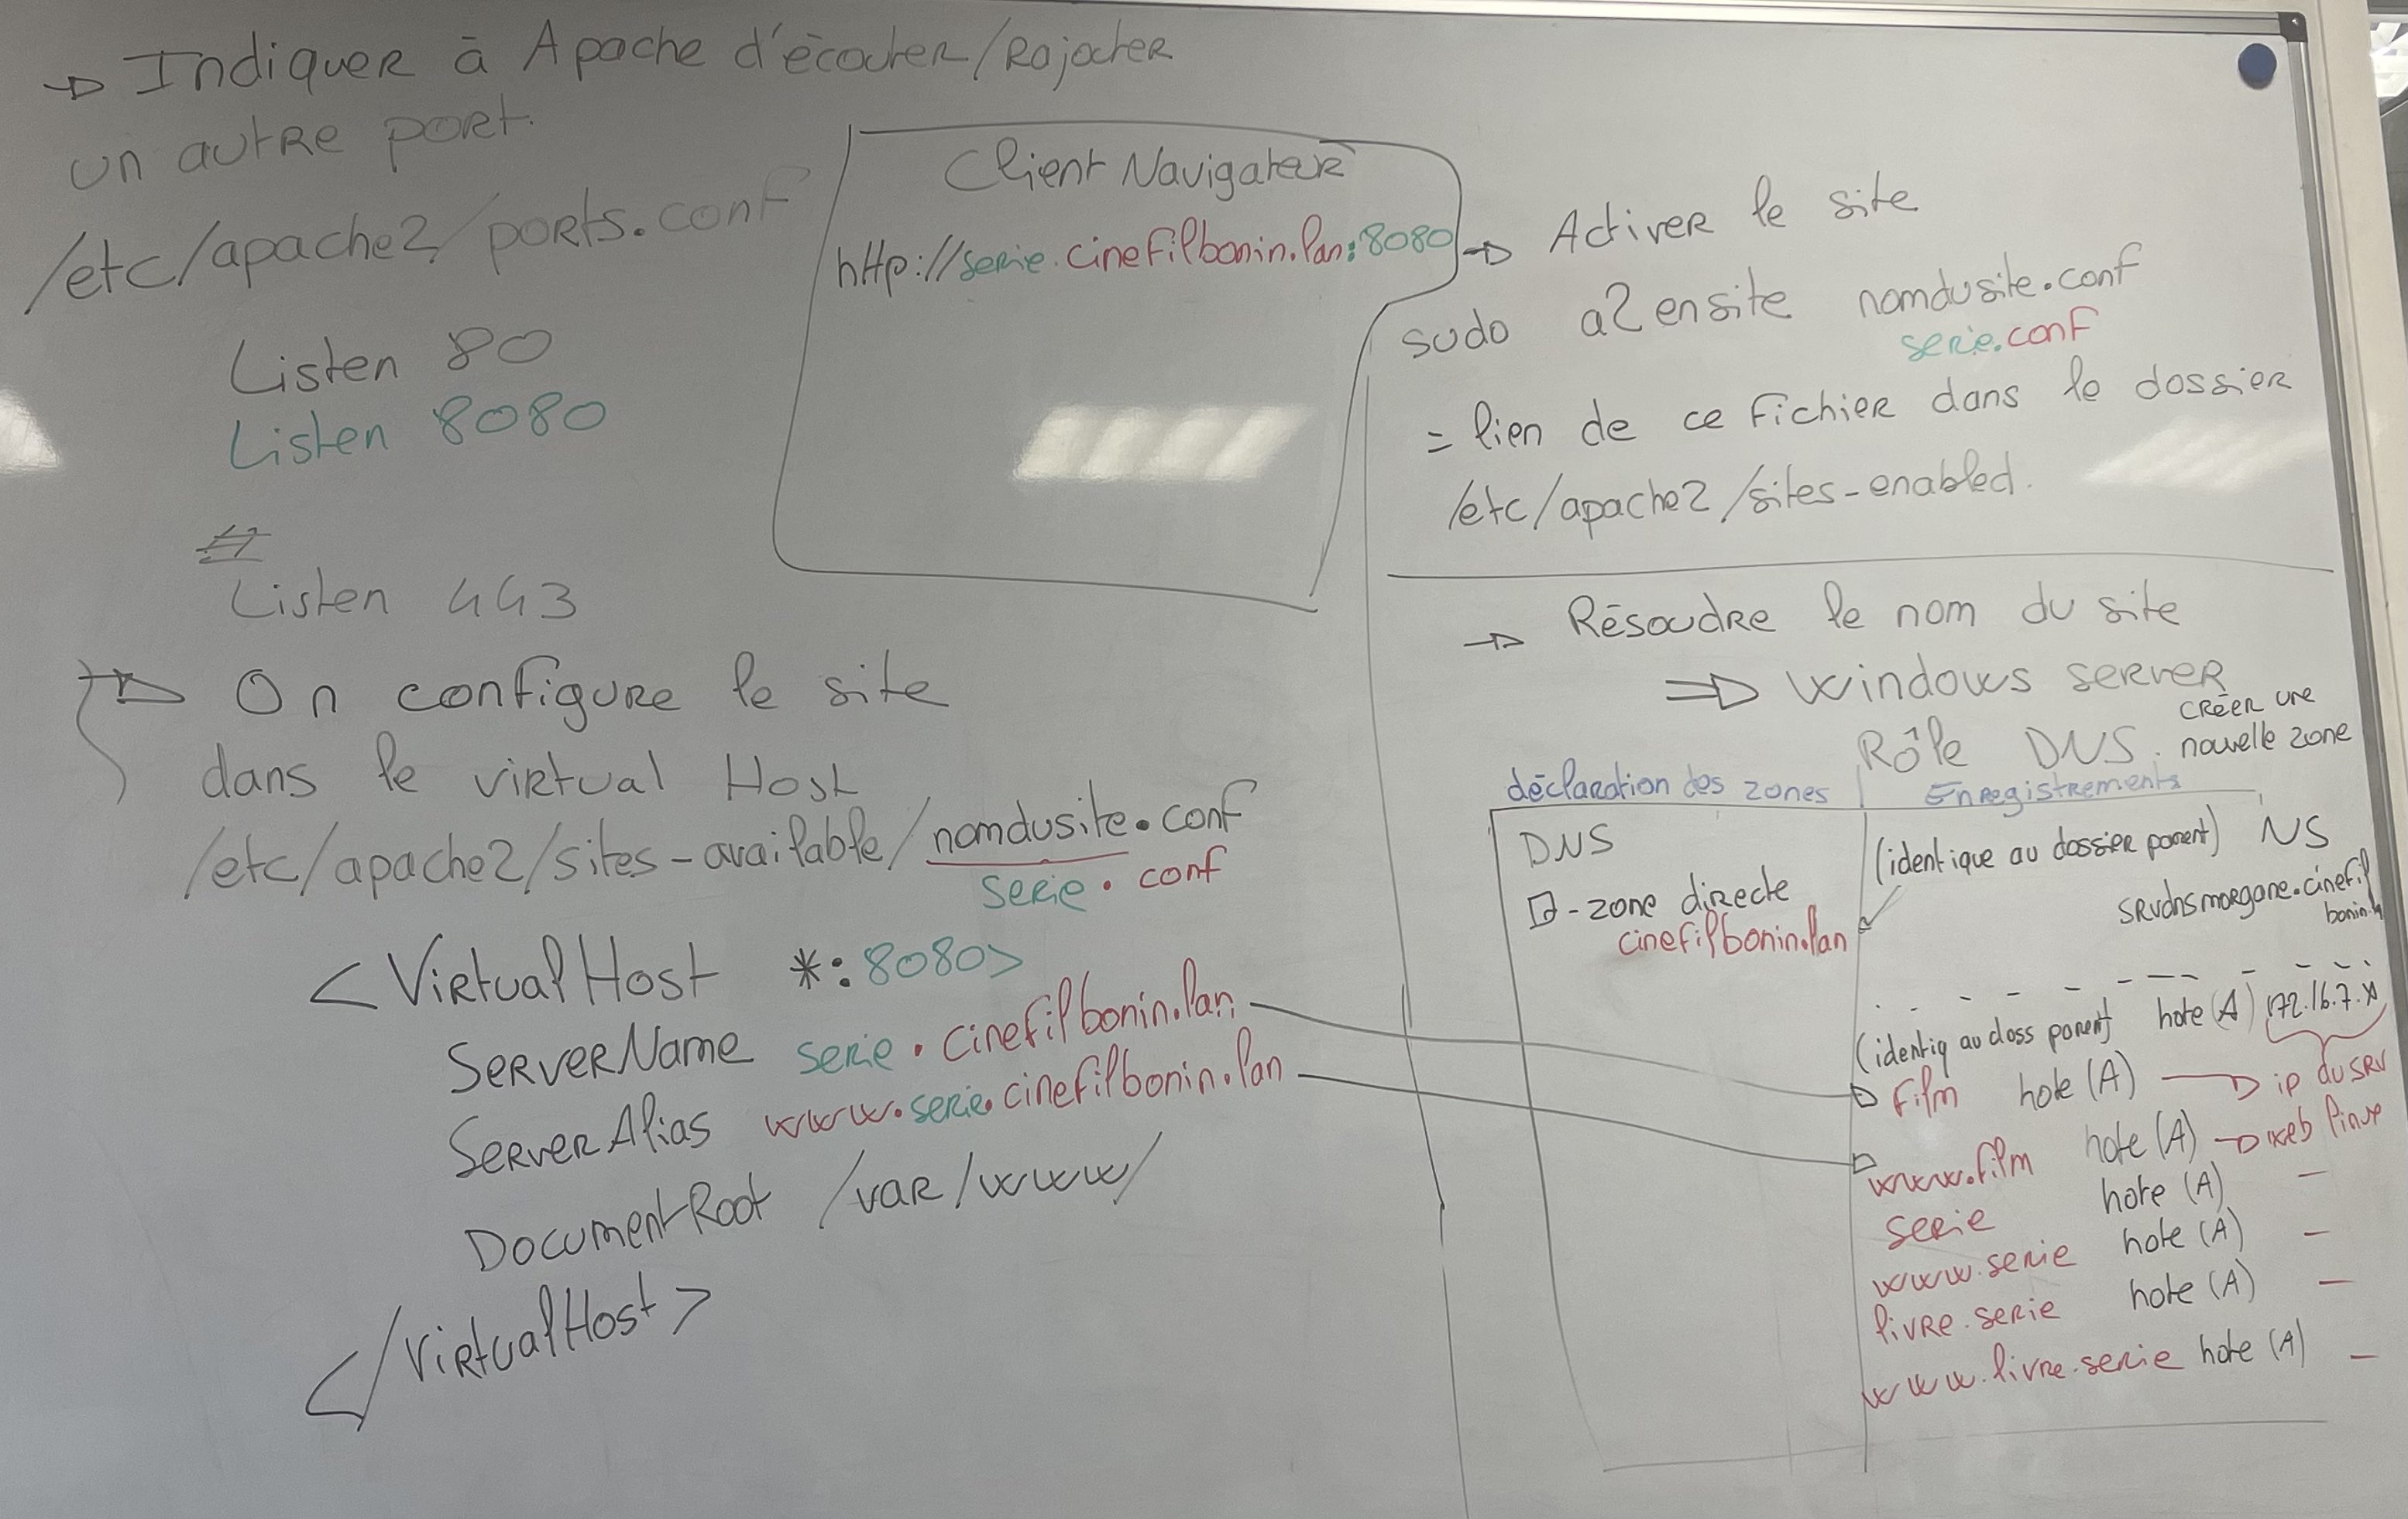 → Indiquer à Apache d'écouter/Rajouter
un autre port.
/etc/apache2/ports.conf
Listen 80
Listen 8080
Listen 443
→ On configure le site
dans le virtual Host
/etc/apache2/sites-available/nomdusite.conf
serie.conf
<VirtualHost *:8080>
ServerName serie.cinefilbonin.lan
ServerAlias www.serie.cinefilbonin.lan
DocumentRoot /var/www/
</VirtualHost>
Client Navigateur
http://serie.cinefilbonin.lan:8080
→ Activer le site
sudo a2ensite nomdusite.conf
serie.conf
= lien de ce fichier dans le dossier
/etc/apache2/sites-enabled.
→ Résoudre le nom du site
⇒ Windows server
Rôle DNS. créer une
nouvelle zone
déclaration des zones Enregistrements
DNS
- zone directe
cinefilbonin.lan
(identique au dossier parent) NS
srvdnsmorgane.cinefil
bonin.
(identiq au doss parent) hote (A) 172.16.7.x
film hote (A) → ip du srv
www.film hote (A) → web linux
serie hote (A) —
www.serie hote (A) —
livre.serie hote (A) —
www.livre.serie hote (A) —